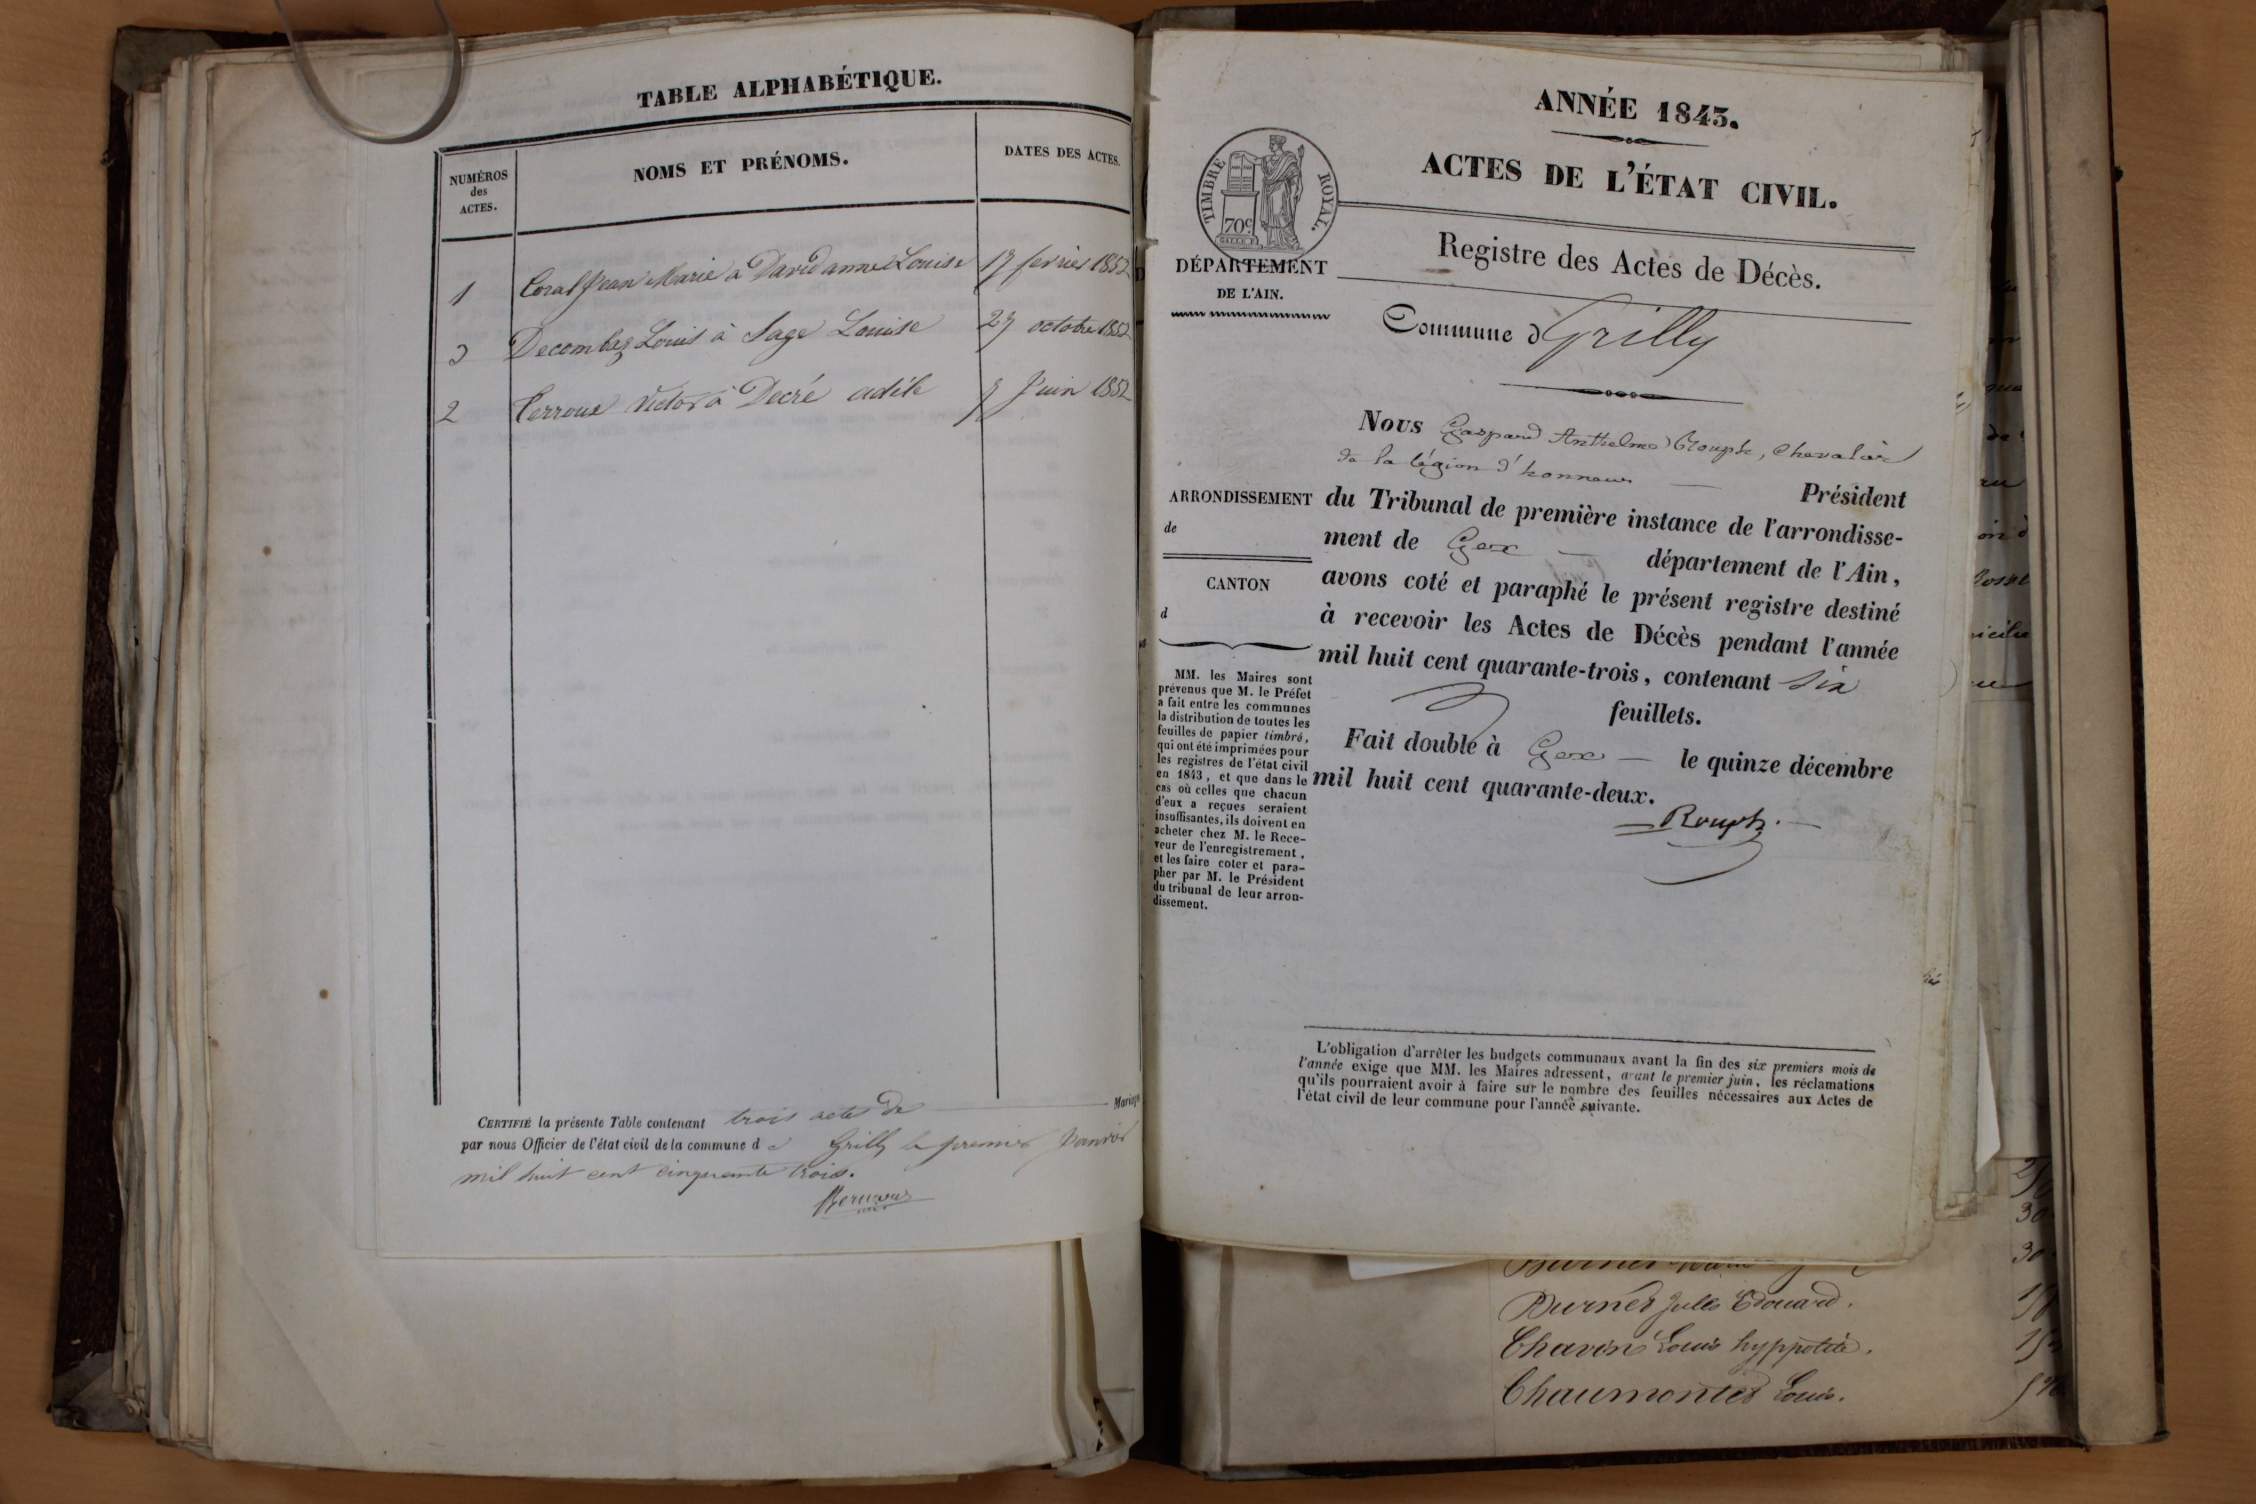 TABLE ALPHABÉTIQUE.
NUMÉROS
des
ACTES.
NOMS ET PRÉNOMS.
DATES DES ACTES.
1 Coral Jean Marie a David anne Louise 17 fevrier 1852
3 Decombaz Louis à Sage Louise 27 octobre 1852
2 Perroux Victor à Decré adèle 7 Juin 1852
CERTIFIÉ la présente Table contenant trois actes de Mariage
par nous Officier de l'état civil de la commune d e Grilly le premier Janvier
mil huit cent cinquante trois.
ANNÉE 1843.
ACTES DE L'ÉTAT CIVIL.
TIMBRE ROYAL.
70c
DÉPARTEMENT
DE L'AIN.
Registre des Actes de Décès.
Commune d Grilly
Nous Gaspard Anthelme Rouph, Chevalier
de la légion d'honneur Président
du Tribunal de première instance de l'arrondisse-
ment de Gex département de l'Ain,
avons coté et paraphé le présent registre destiné
à recevoir les Actes de Décès pendant l'année
mil huit cent quarante-trois, contenant six
feuillets.
Fait double à Gex le quinze décembre
mil huit cent quarante-deux.
Rouph.
ARRONDISSEMENT
de
CANTON
d
MM. les Maires sont
prévenus que M. le Préfet
a fait entre les communes
la distribution de toutes les
feuilles de papier timbré,
qui ont été imprimées pour
les registres de l'état civil
en 1843, et que dans le
cas où celles que chacun
d'eux a reçues seraient
insuffisantes, ils doivent en
acheter chez M. le Rece-
veur de l'enregistrement,
et les faire coter et para-
pher par M. le Président
du tribunal de leur arron-
dissement.
L'obligation d'arrêter les budgets communaux avant la fin des six premiers mois de
l'année exige que MM. les Maires adressent, avant le premier juin, les réclamations
qu'ils pourraient avoir à faire sur le nombre des feuilles nécessaires aux Actes de
l'état civil de leur commune pour l'année suivante.
Burnet Jules Edouard.
Chavin Louis hyppolite.
Chaumontet Louis.